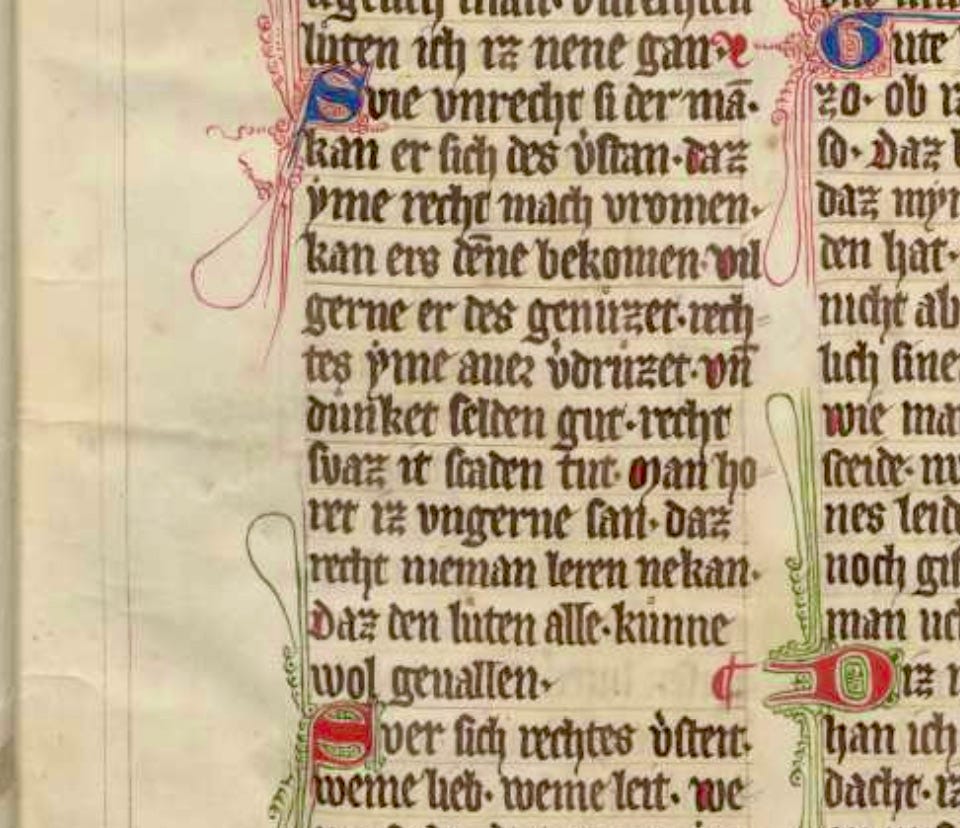 luten ich iz nene gan·
Swie vnrecht si der mā·
kan er sich des v̓stan· daz
ẏme recht mach vromen·
kan ers dēne bekomen· vil
gerne er des genuzet· rech
tes ẏme auer v̓druzet· vn̄
dunket selden gut· recht
swaz it scaden tut· Man ho
ret iz vngerne san· daz
recht nieman leren nekan·
Daz den luten alle· kunne
wol geuallen·
Swer sich rechtes v̓steit·
weme lieb· weme leit· we
Gute
zo· ob iz
so· Daz
daz
den hat·
nicht
lich sine
wie
sceide·
nes
noch
man
Diz
han ich
dacht· iz